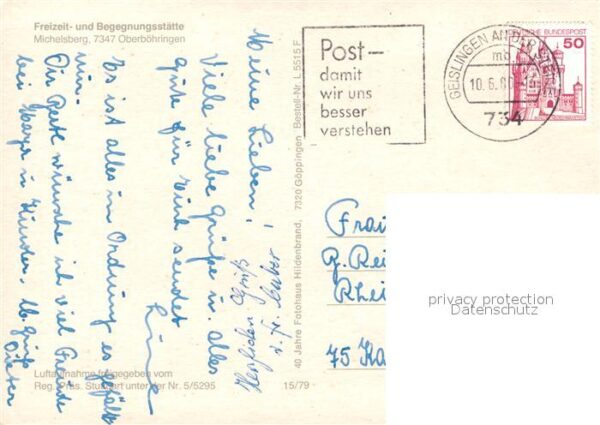 Freizeit- und Begegnungsstätte
Michelsberg, 7347 Oberböhringen
Meine Lieben!
Viele liebe Grüße u. alles
Gute für Euch sendet
Es ist alles in Ordnung es gefällt
mir.
wünsche ich viel Freude
Kinder. lb. Grüße
Dieter
Herzlichen Gruß
Luftaufnahme freigegeben vom
Reg. Präs. Stuttgart unter der Nr. 5/5295
15/79
40 Jahre Fotohaus Hildenbrand, 7320 Göppingen Bestell-Nr. L 5515 F
Post-
damit
wir uns
besser
verstehen
GEISLINGEN AN DER STEIGE
mb
10.6.80
734
DEUTSCHE BUNDESPOST
50
Frau
G. Rei
Rhei
75 Ka
privacy protection
Datenschutz